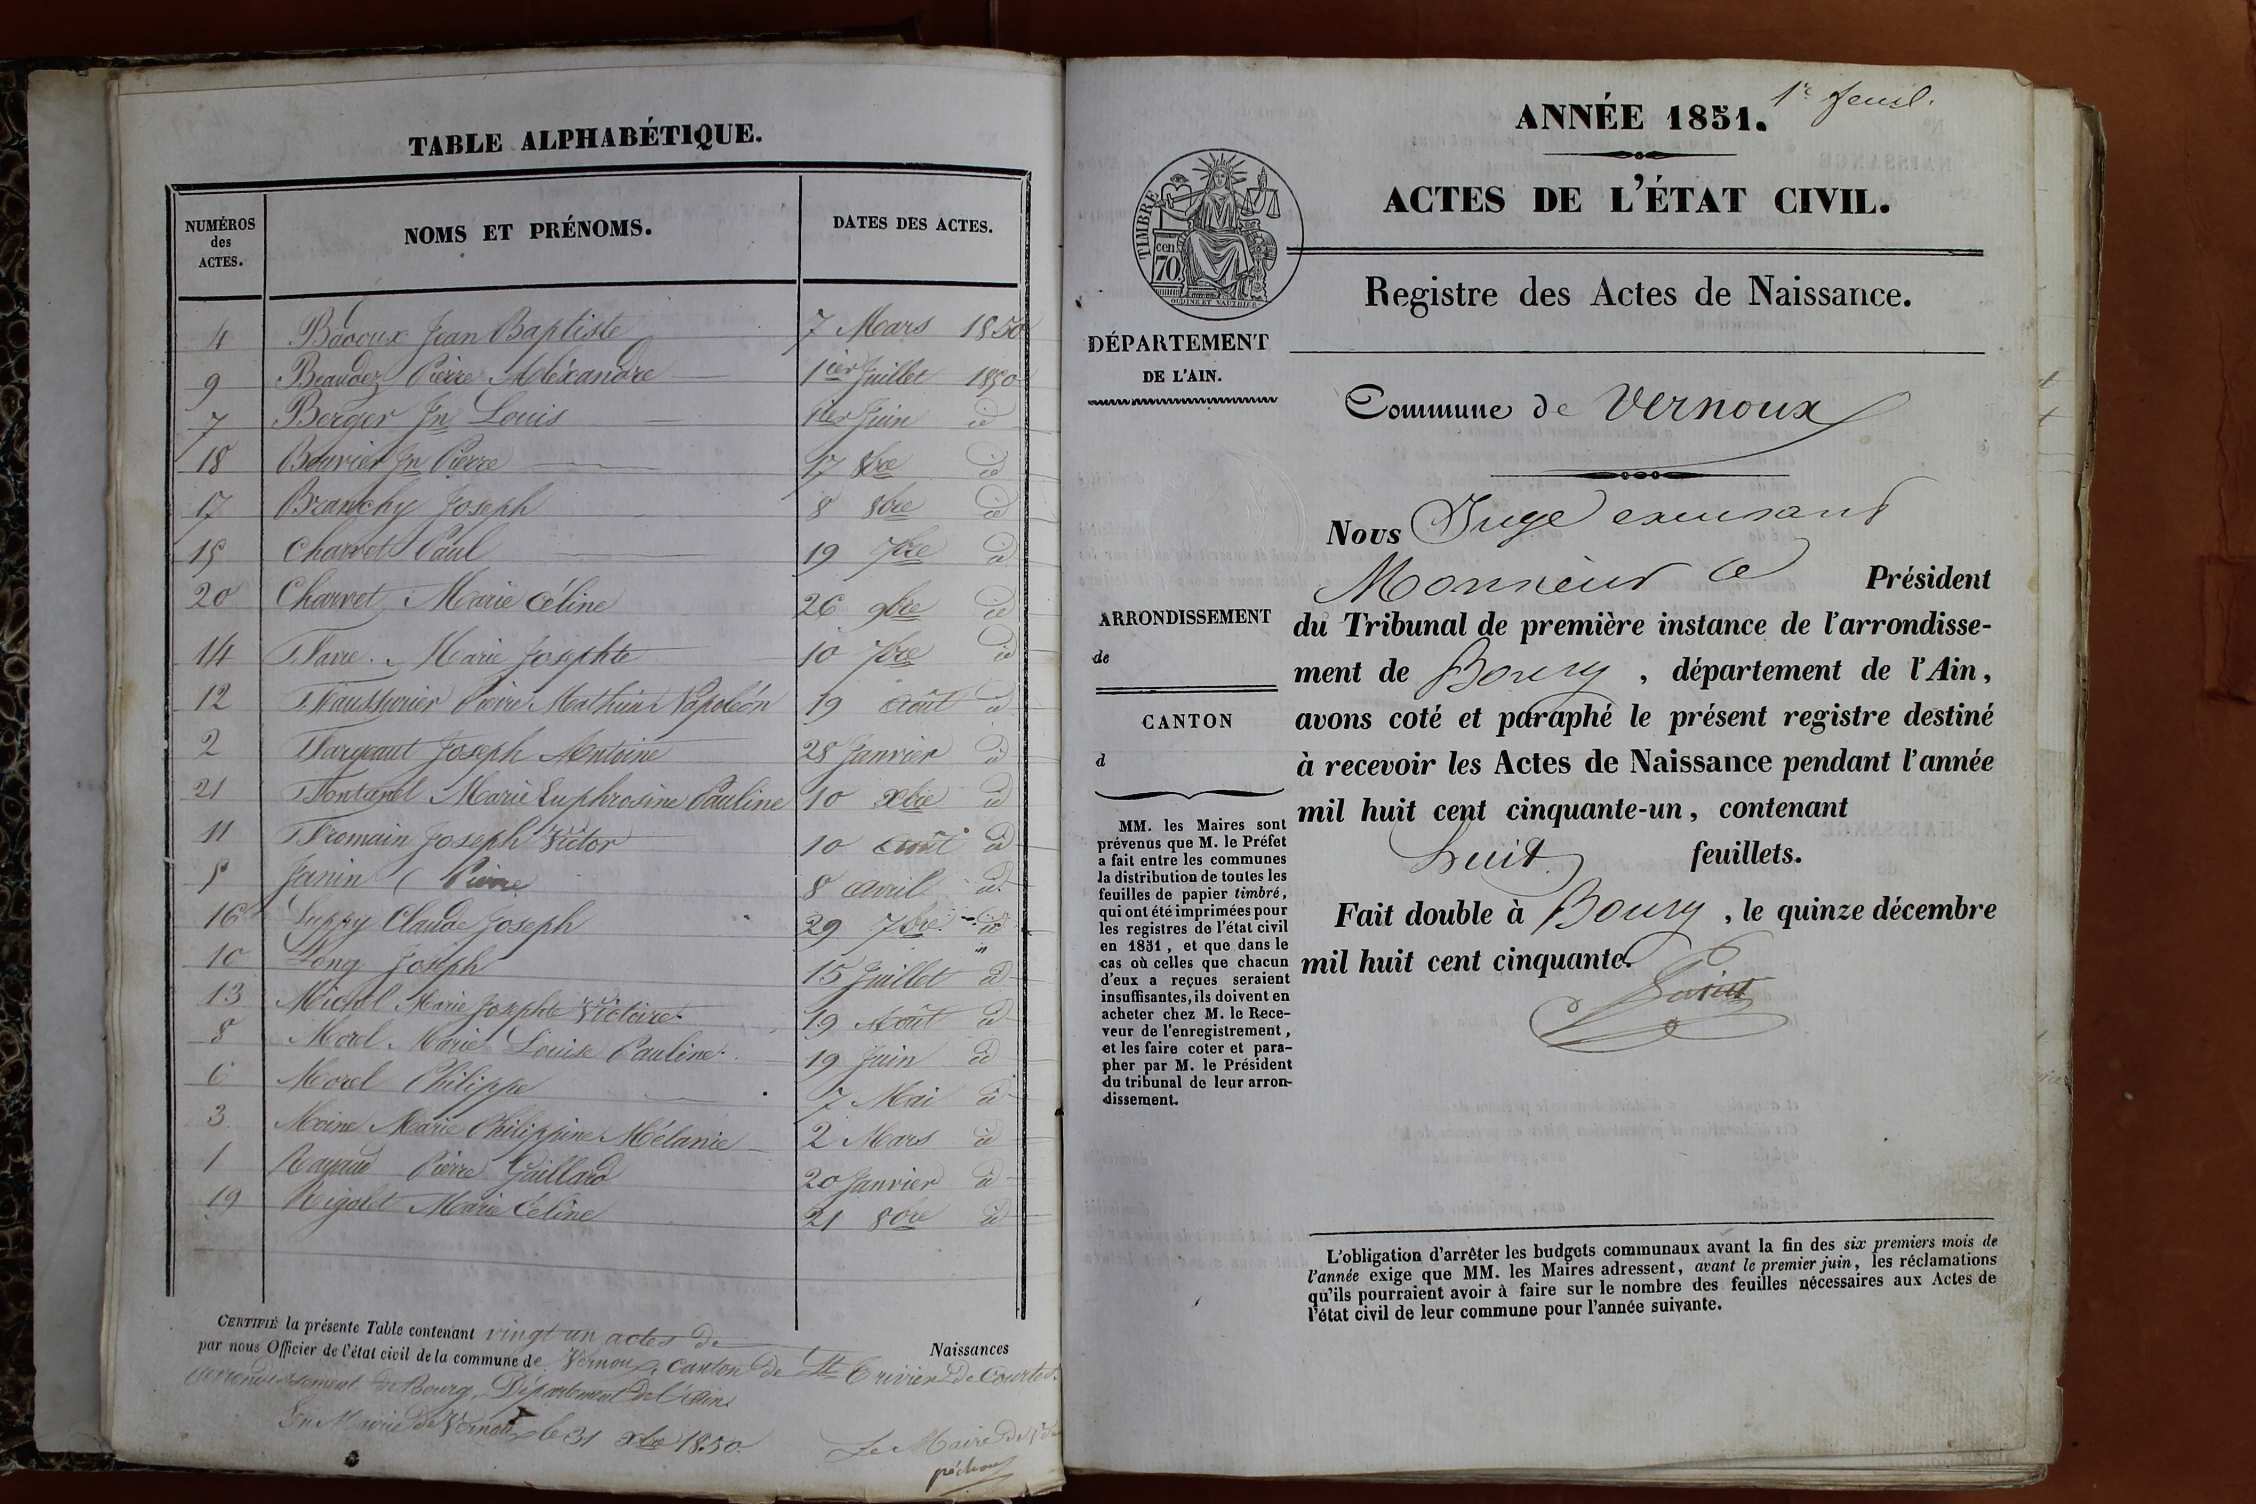 TABLE ALPHABÉTIQUE.
NUMÉROS
des
ACTES.
NOMS ET PRÉNOMS.
DATES DES ACTES.
4 Bavoux Jean Baptiste 7 Mars 1850
9 Beaudez Pierre Aléxandre 1ier Juillet 1850
7 Berger Jn Louis 1ier Juin id
18 Bouvier Jn Pierre 17 8bre id
17 Branchy Joseph 8 8bre id
15 Charvet Paul 19 7bre id
20 Charvet Marie Céline 26 9bre id
14 Favre Marie Josephte 10 7bre id
12 Pierre Mathieu Napoléon 19 Août id
2 Joseph Antoine 28 Janvier id
21 Fontanel Marie Euphrosine Pauline 10 xbre id
11 Fromain Joseph Victor 10 Août id
5 Janin Pierre 8 Avril id
16 Claude Joseph 29 7bre id
10 Long Joseph 15 Juillet id
13 Michel Marie Josephte Victoire 19 Août id
8 Morel Marie Louise Pauline 19 Juin id
6 Morel Philippe 7 Mai id
3 Moine Marie Philippine Mélanie 2 Mars id
1 Rayaud Pierre Gaillard 20 Janvier id
19 Rigolet Marie Céline 21 8bre id
CERTIFIÉ la présente Table contenant vingt un actes de Naissances
par nous Officier de l'état civil de la commune de Vernoux, canton de St Trivier de Courtes
arrondissement de Bourg, Département de l'Ain
En Mairie de Vernoux le 31 xbre 1850.
Le Maire de
péchoux
1er feuil.
ANNÉE 1851.
ACTES DE L'ÉTAT CIVIL.
TIMBRE
cen
70
Registre des Actes de Naissance.
DÉPARTEMENT
DE L'AIN.
Commune de Vernoux
ARRONDISSEMENT
de
CANTON
d
MM. les Maires sont
prévenus que M. le Préfet
a fait entre les communes
la distribution de toutes les
feuilles de papier timbré,
qui ont été imprimées pour
les registres de l'état civil
en 1851, et que dans le
cas où celles que chacun
d'eux a reçues seraient
insuffisantes, ils doivent en
acheter chez M. le Rece-
veur de l'enregistrement,
et les faire coter et para-
pher par M. le Président
du tribunal de leur arron-
dissement.
Nous Juge excusant
Monsieur le Président
du Tribunal de première instance de l'arrondisse-
ment de Bourg, département de l'Ain,
avons coté et paraphé le présent registre destiné
à recevoir les Actes de Naissance pendant l'année
mil huit cent cinquante-un, contenant
huit feuillets.
Fait double à Bourg, le quinze décembre
mil huit cent cinquante.
L'obligation d'arrêter les budgets communaux avant la fin des six premiers mois de
l'année exige que MM. les Maires adressent, avant le premier juin, les réclamations
qu'ils pourraient avoir à faire sur le nombre des feuilles nécessaires aux Actes de
l'état civil de leur commune pour l'année suivante.